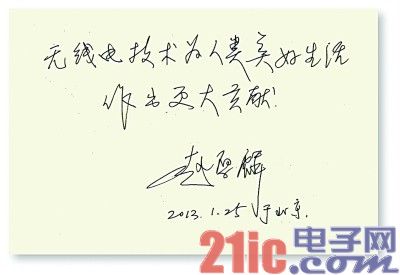 无线电技术为人类美好生活
作出更大贡献!
2013.1.25 于北京.
21ic电子网
.com